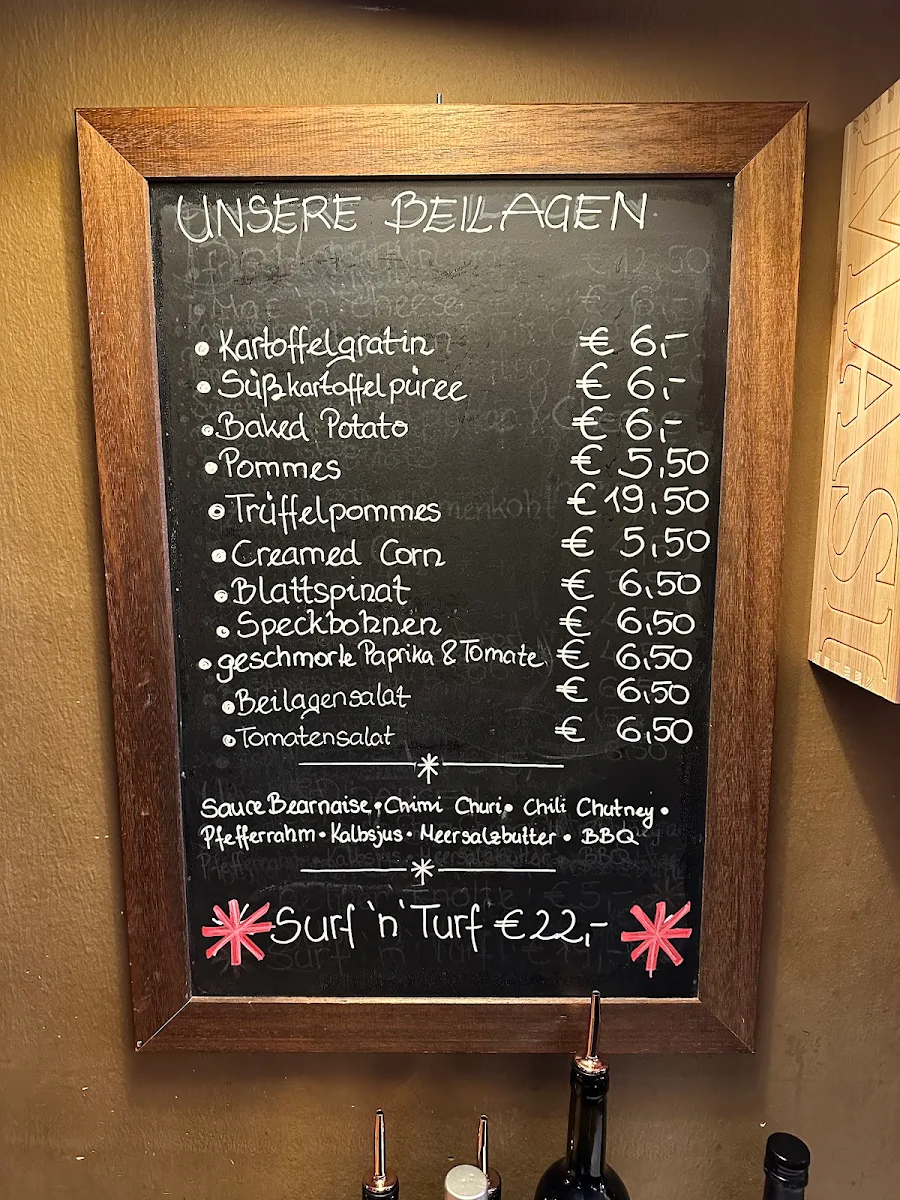 UNSERE BEILAGEN
• Mac 'n' Cheese € 6,-
• Kartoffelgratin € 6,-
• Süßkartoffelpüree € 6,-
• Baked Potato € 6,-
• Pommes € 5,50
• Trüffelpommes € 19,50
• Creamed Corn € 5,50
• Blattspinat € 6,50
• Speckbohnen € 6,50
• geschmorte Paprika & Tomate € 6,50
• Beilagensalat € 6,50
• Tomatensalat € 6,50
Sauce Bearnaise • Chimi Churi • Chili Chutney •
Pfefferrahm • Kalbsjus • Meersalzbutter • BBQ
Surf 'n' Turf € 22,-